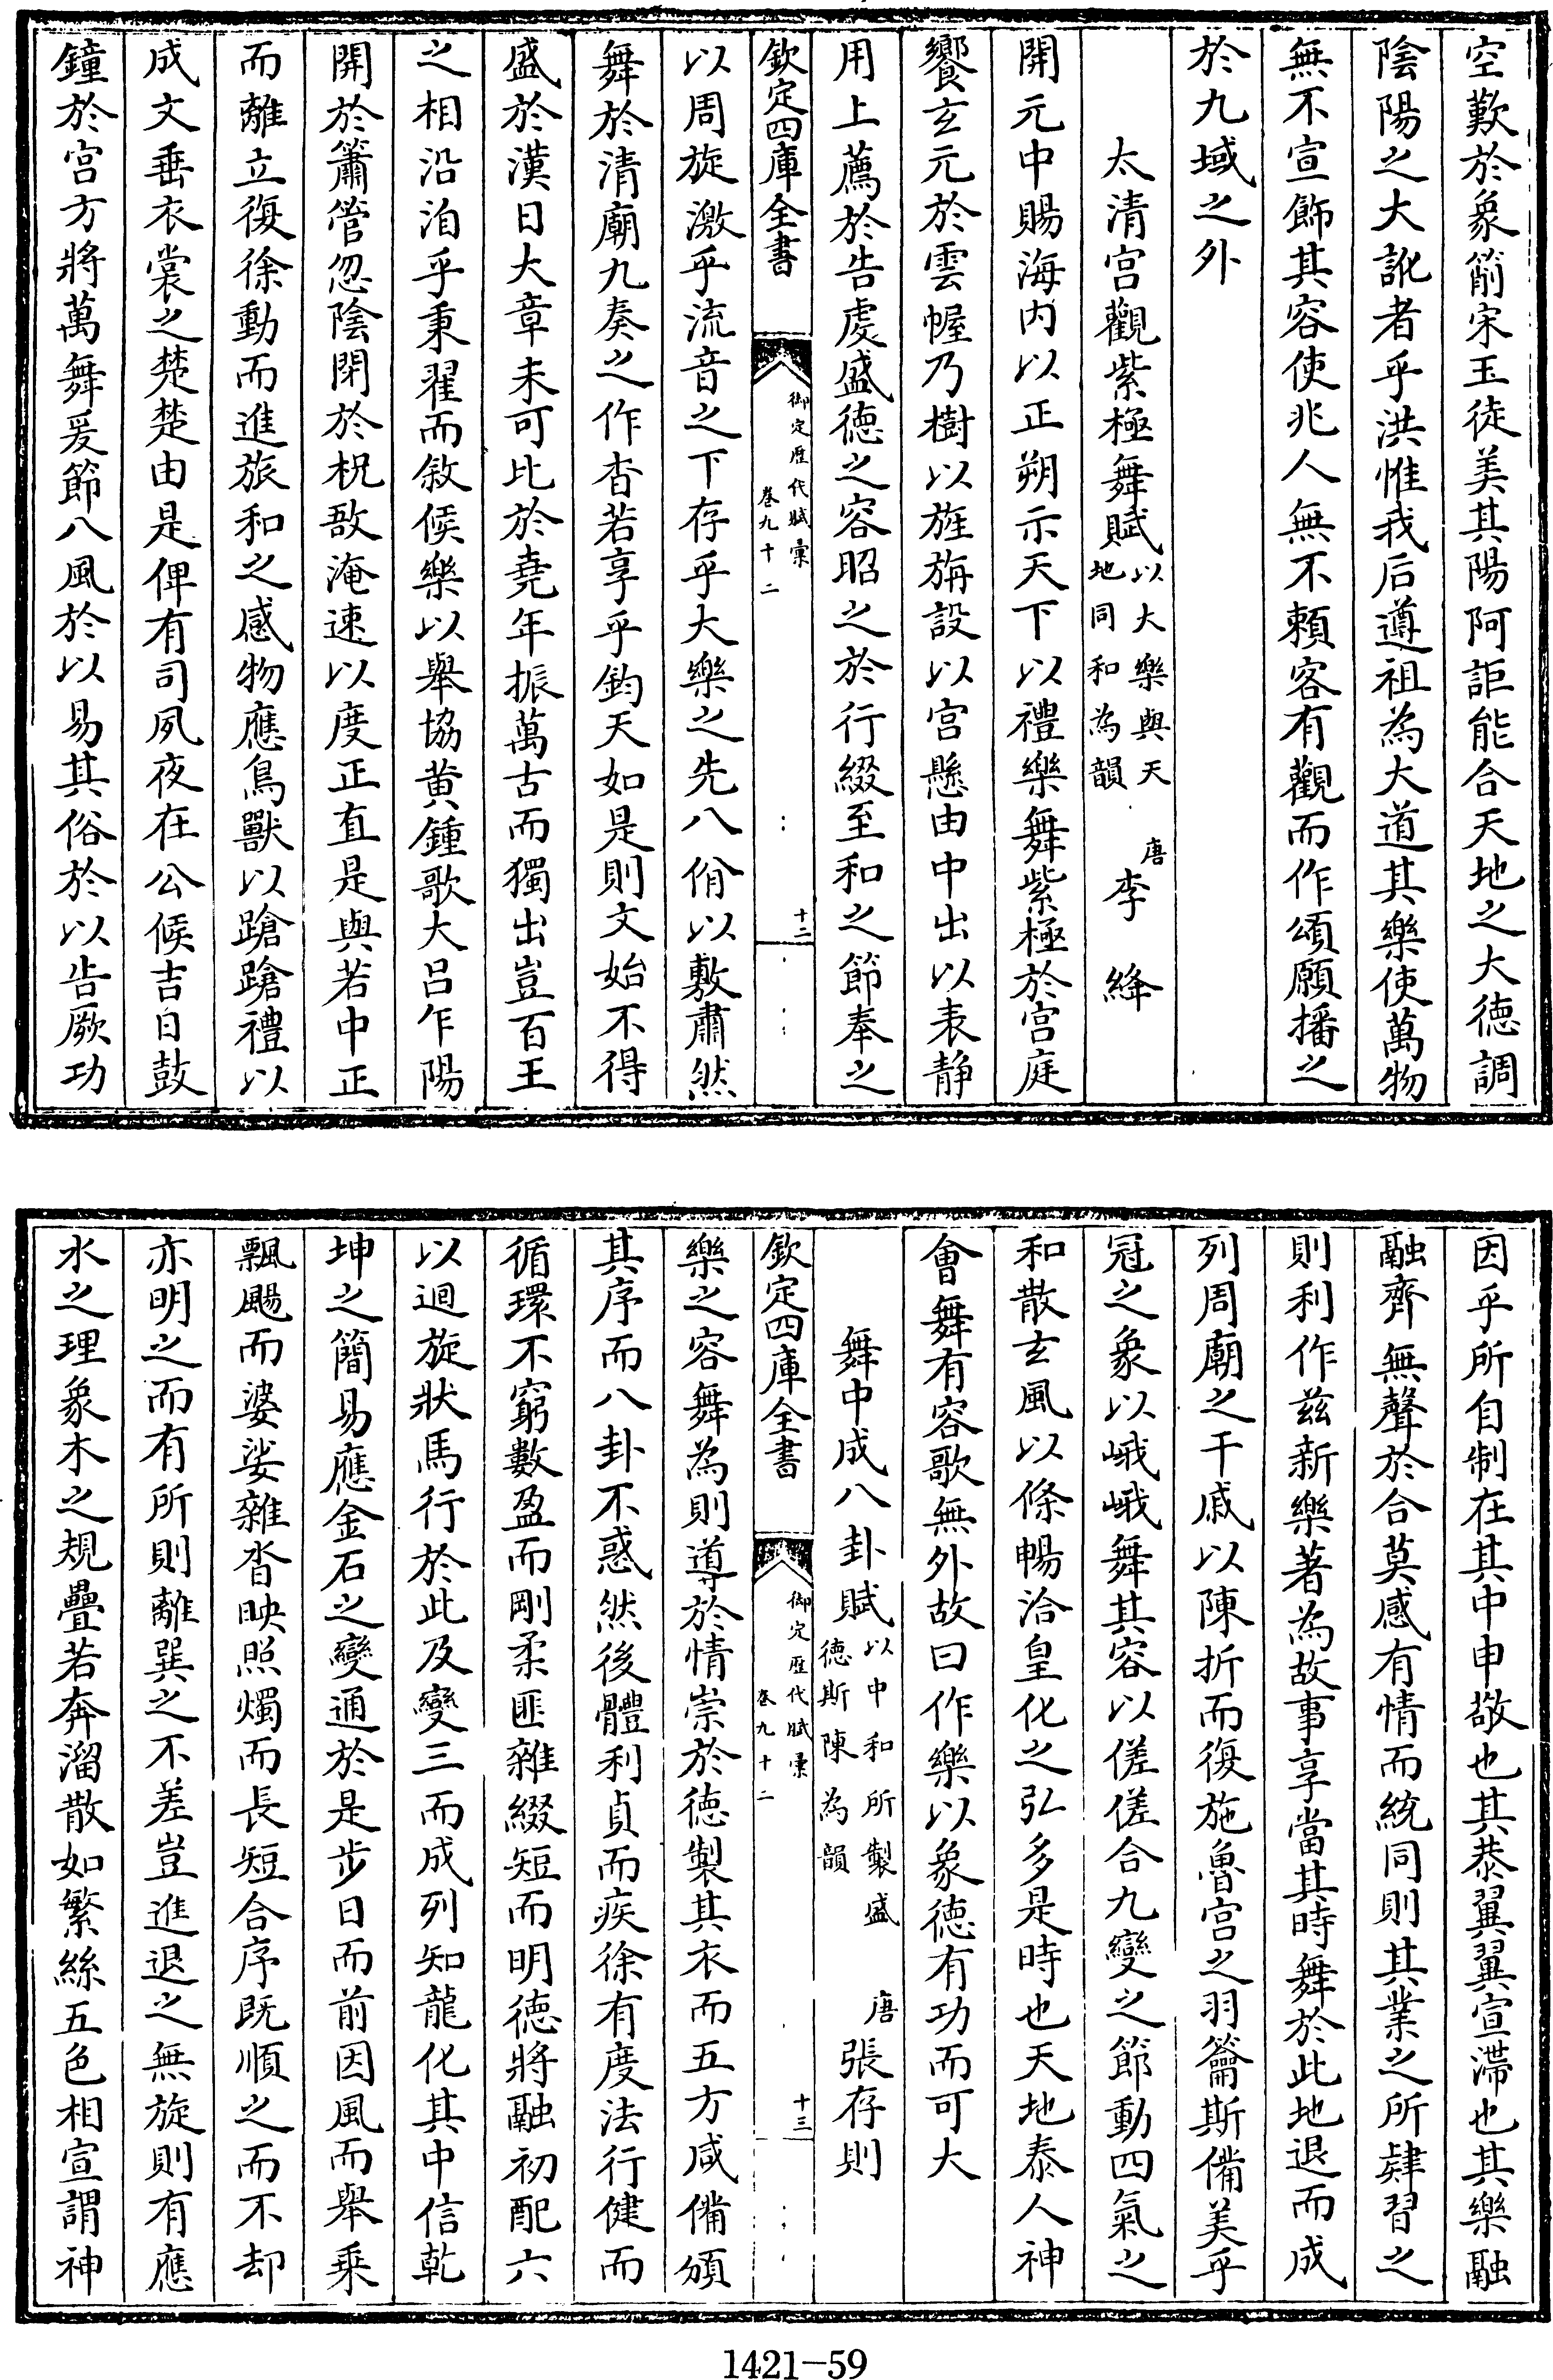 空歎於象箾宋玉徒美其陽阿詎能合天地之大德調
陰陽之大訛者乎洪惟我后遵祖為大道其樂使萬物
無不宣飾其容使兆人無不賴客有觀而作頌願播之
於九域之外
太清宫觀紫極舞賦以大樂與天地同和為韻 唐李絳
開元中賜海内以正朔示天下以禮樂舞紫極於宫庭
饗玄元於雲幄乃樹以旌旃設以宫懸由中出以表静
用上薦於告虔盛德之容昭之於行綴至和之節奉之
欽定四庫全書
御定歴代賦彚
卷九十二
十二
以周旋激乎流音之下存乎大樂之先八佾以敷肅然
舞於清廟九奏之作杳若享乎鈞天如是則文始不得
盛於漢日大章未可比於堯年振萬古而獨出豈百王
之相沿洎乎秉翟而敘候樂以舉協黄鍾歌大吕乍陽
開於簫管忽陰閉於柷敔淹速以度正直是與若中正
而離立復徐動而進旅和之感物應鳥獸以蹌蹌禮以
成文垂衣裳之楚楚由是俾有司夙夜在公候吉日鼓
鐘於宫方將萬舞爰節八風於以易其俗於以告厥功
因乎所自制在其中申敬也其恭翼翼宣滯也其樂融
融齊無聲於合莫感有情而統同則其業之所肄習之
則利作兹新樂著為故事享當其時舞於此地退而成
列周廟之干戚以陳折而復施魯宫之羽籥斯備美乎
冠之象以峨峨舞其容以傞傞合九變之節動四氣之
和散玄風以條暢洽皇化之弘多是時也天地泰人神
會舞有容歌無外故曰作樂以象德有功而可大
舞中成八卦賦以中和所製盛德斯陳為韻 唐張存則
欽定四庫全書
御定歴代賦彚
卷九十二
十三
樂之容舞為則導於情崇於德製其衣而五方咸備頒
其序而八卦不惑然後體利貞而疾徐有度法行健而
循環不窮數盈而剛柔匪雜綴短而明德將融初配六
以迴旋狀馬行於此及變三而成列知龍化其中信乾
坤之簡易應金石之變通於是步日而前因風而舉乗
飄颺而婆娑雜沓映照燭而長短合序既順之而不却
亦明之而有所則離巽之不差豈進退之無旋則有應
水之理象木之規疊若奔溜散如繁絲五色相宣謂神
1421-59